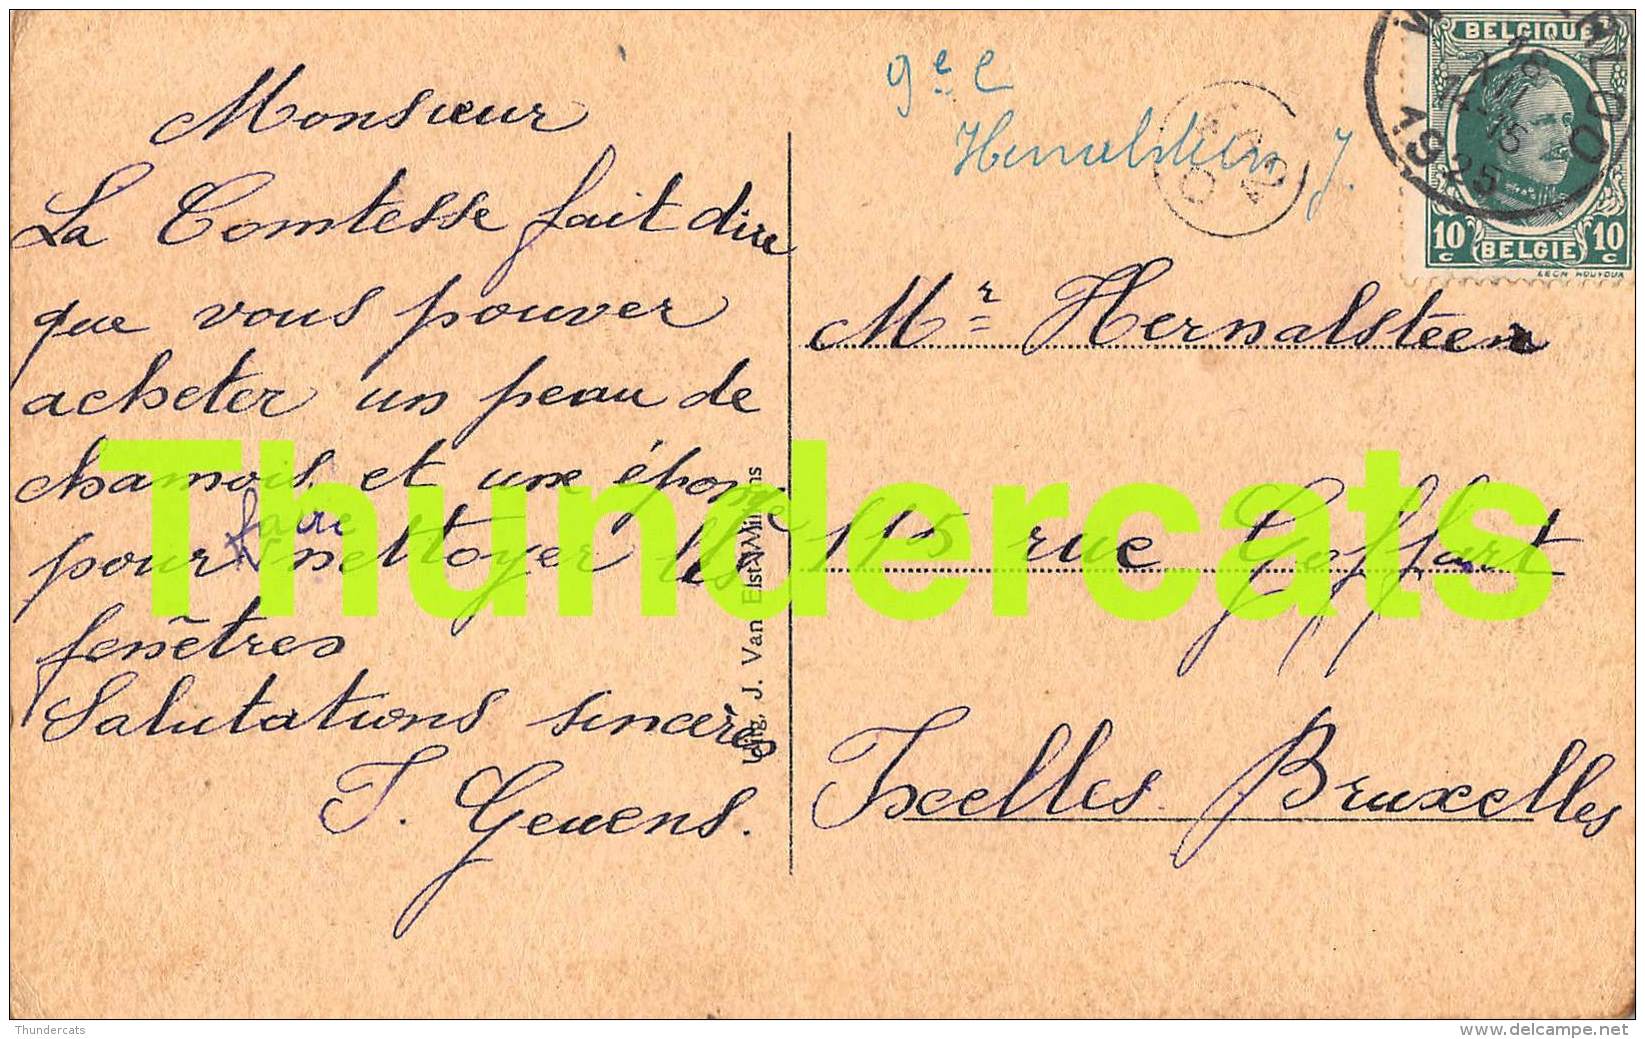 Monsieur
La Comtesse fait dire
que vous pouver
acheter un peau de
chamois et une éponge
faire
pour nettoyer les
fenêtres
Salutations sincères
J. Geuens.
Uitg. J. Van Elst-Willems
9e C
J.
BELGIQUE
1925
10c BELGIE 10c
Mr Hernalsteen
115 rue Goffart
Ixelles Bruxelles
Thundercats
Thundercats
www.delcampe.net